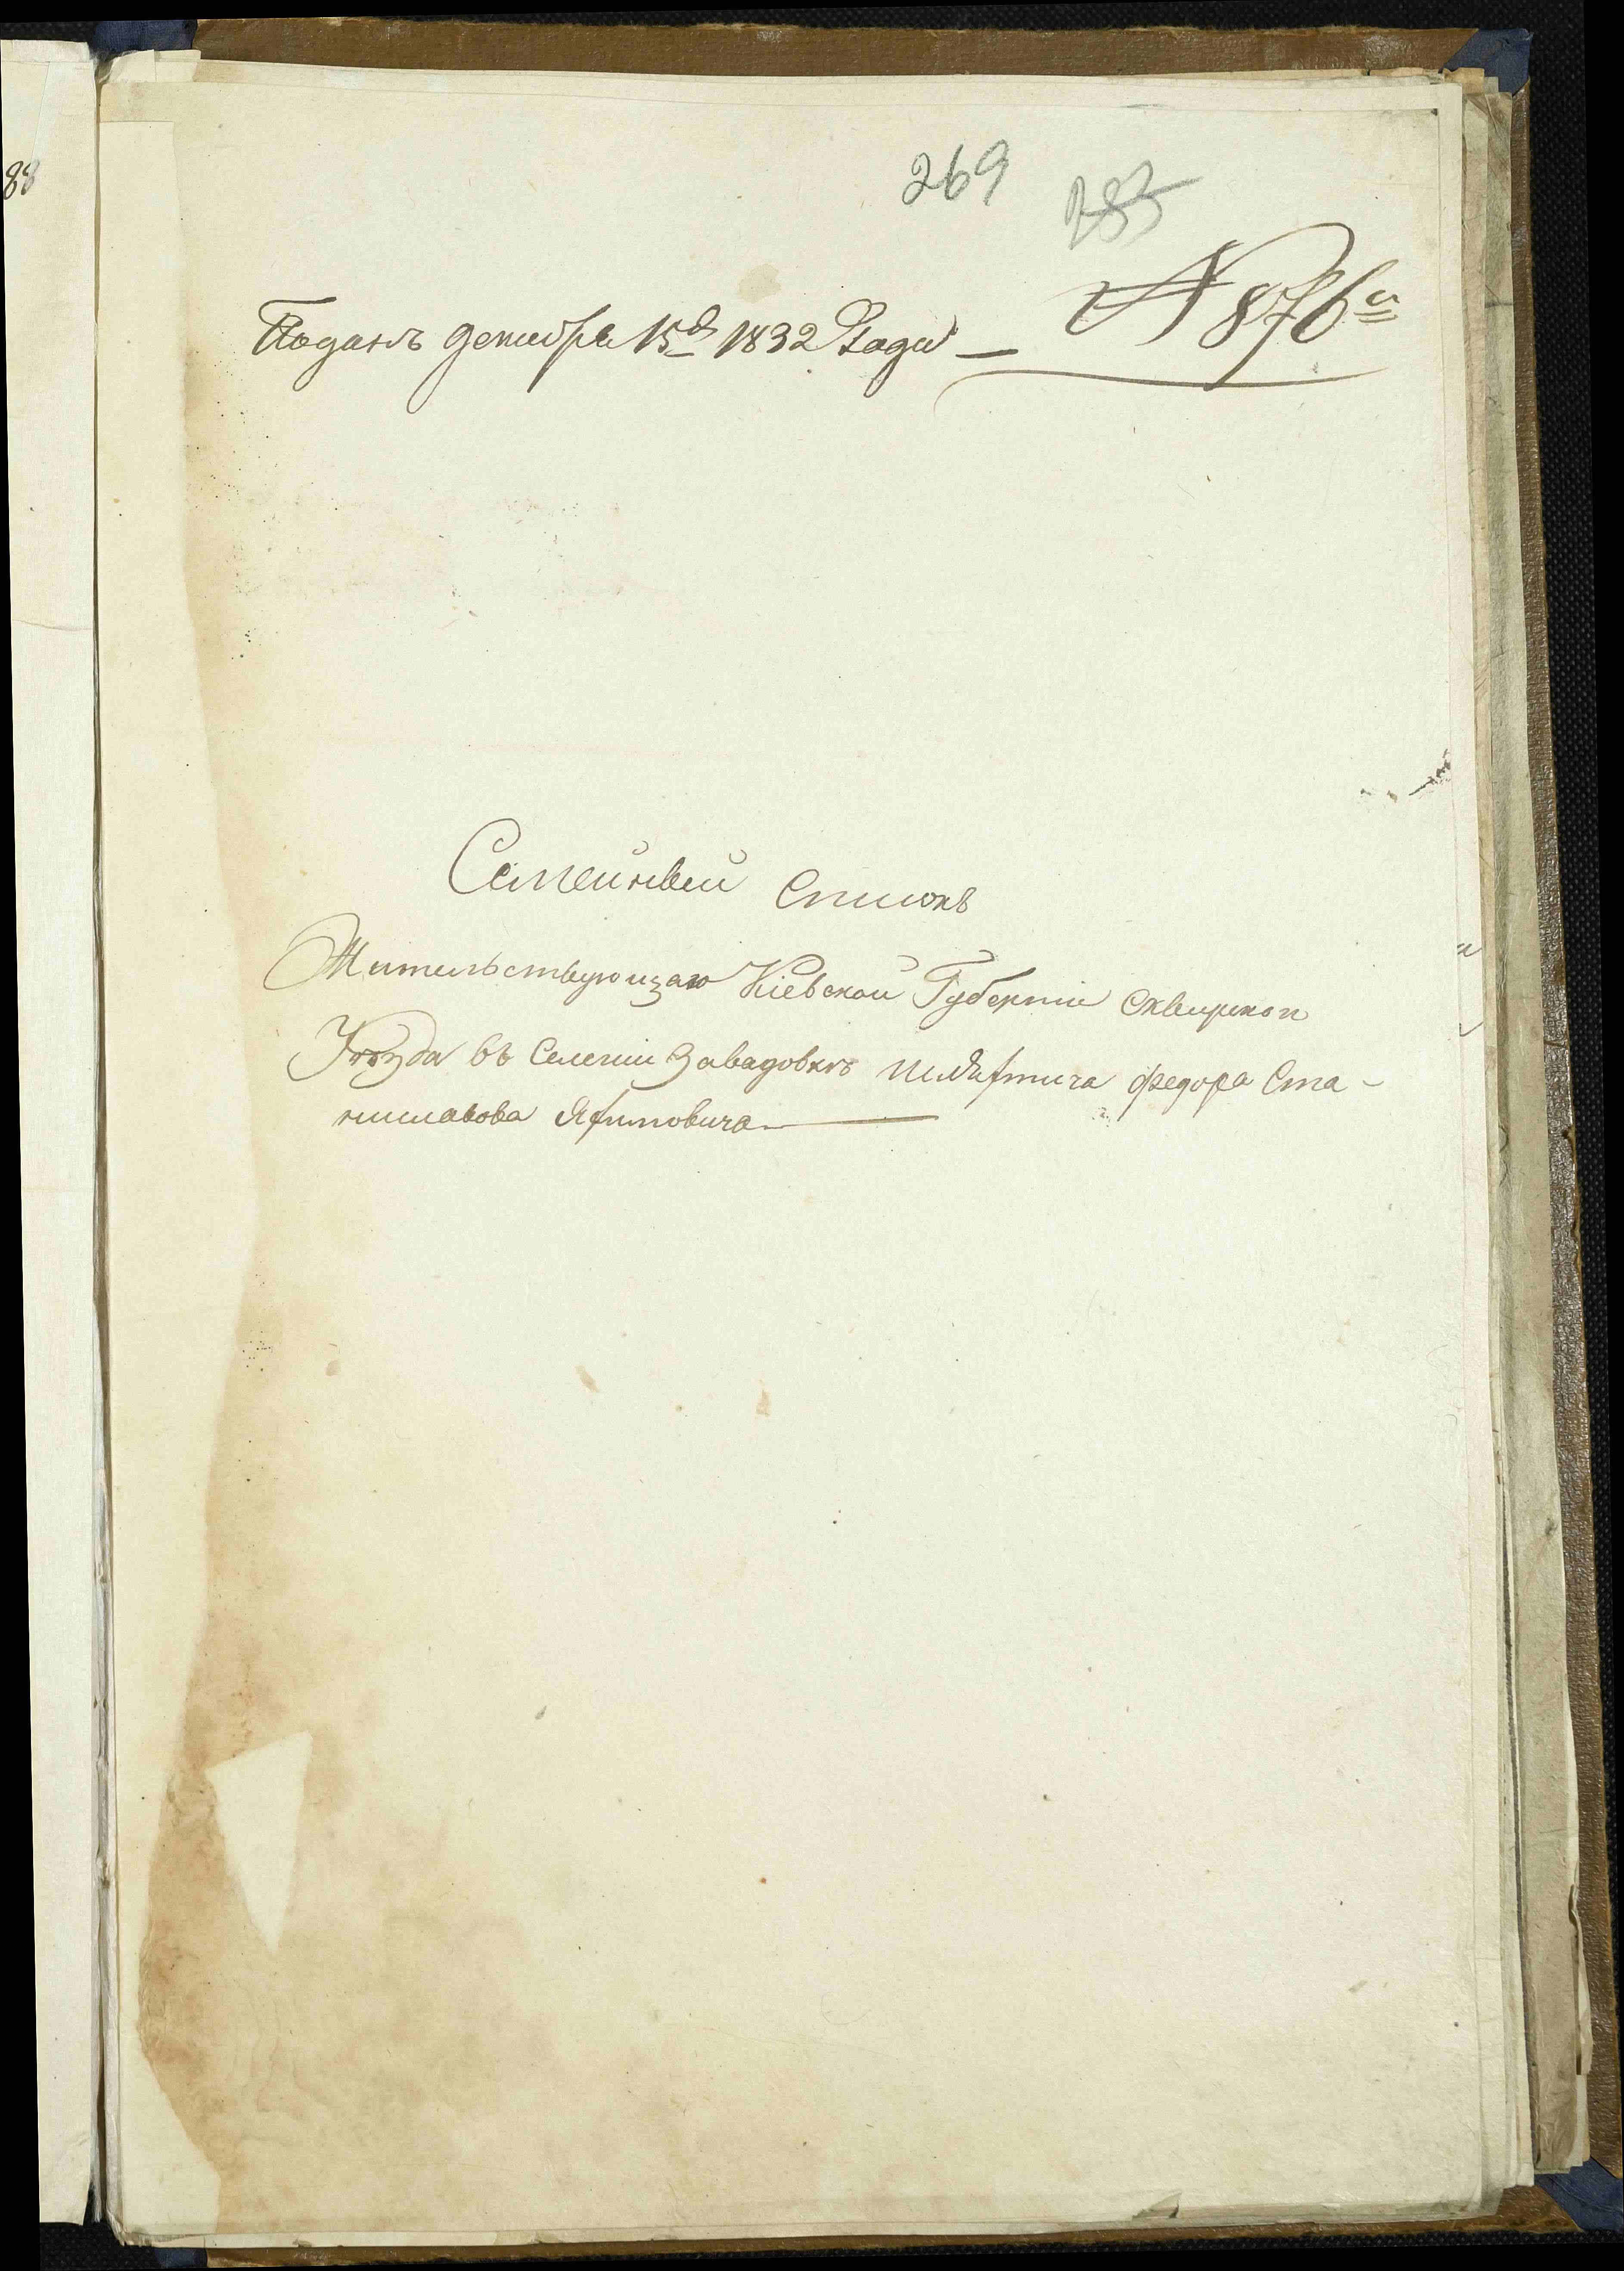 88
269
283
№ 876й
Поданъ декабра 15д 1832 Года
Семейный Списокъ
Жительствующаго Кіевской Губерніи Сквирскои
Уѣзда въ Селеніи Завадовкѣ шляхтича Федора Ста-
ниславова Яхимовича